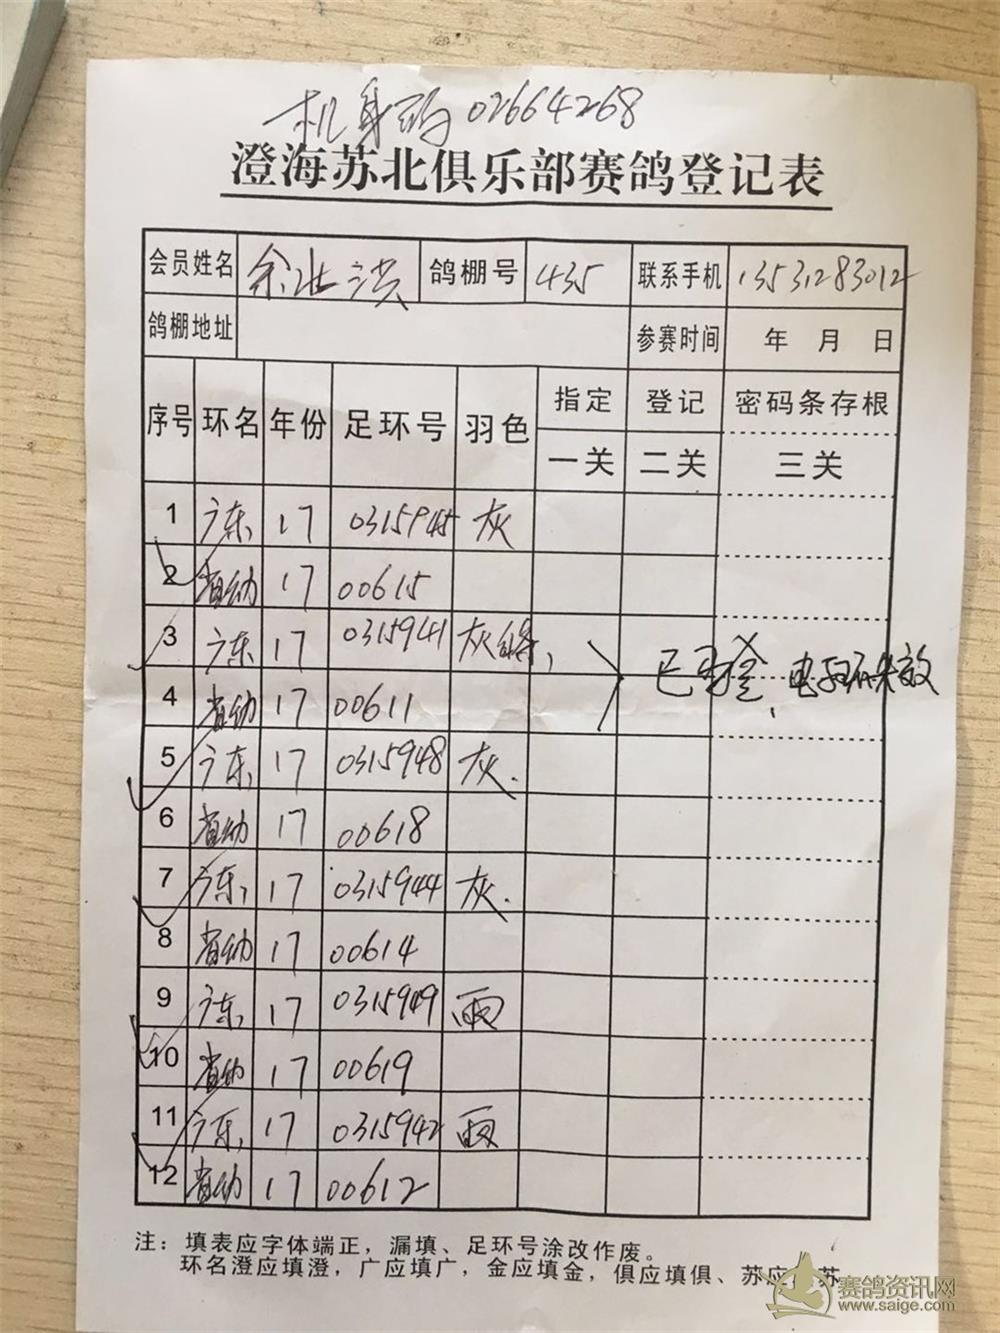 机身码 02664268
澄海苏北俱乐部赛鸽登记表
会员姓名 余 洪 鸽棚号 435 联系手机 13531283012
鸽棚地址 参赛时间 年 月 日
序号 环名 年份 足环号 羽色 指定 登记 密码条存根
一关 二关 三关
1 广东 17 0315945 灰
2 省幼 17 00615
3 广东 17 0315941 灰白条
4 省幼 17 00611
已 电子环失效
5 广东 17 0315948 灰
6 省幼 17 00618
7 广东 17 0315944 灰
8 省幼 17 00614
9 广东 17 0315949 雨
10 省幼 17 00619
11 广东 17 0315942 雨
12 省幼 17 00612
注：填表应字体端正，漏填、足环号涂改作废。
环名澄应填澄，广应填广，金应填金，俱应填俱、苏应 苏
赛鸽资讯网
www.saige.com